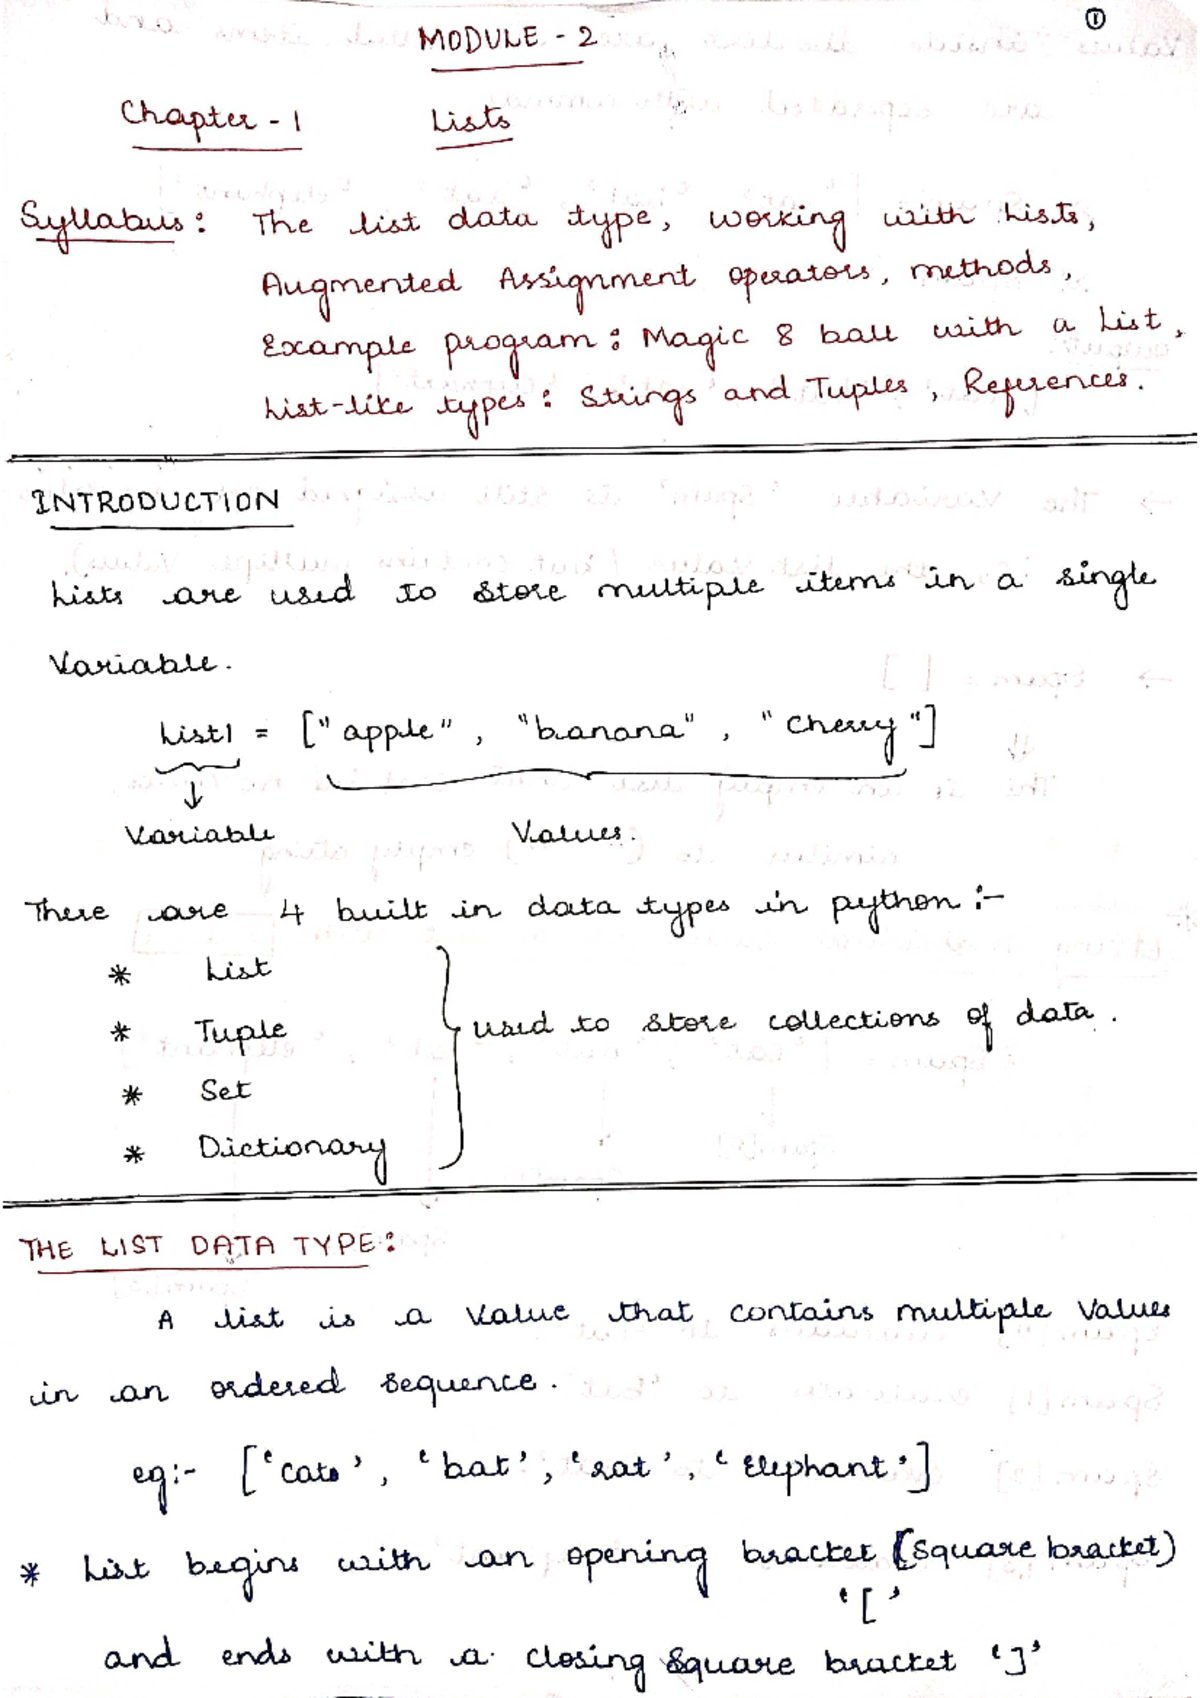 ①
MODULE - 2
Chapter - 1 Lists
Syllabus : The list data type, working with Lists,
Augmented Assignment operators, methods,
Example program : Magic 8 ball with a List,
List-like types : Strings and Tuples, References.
INTRODUCTION
Lists are used to store multiple items in a single
Variable.
List1 = ["apple", "banana", "cherry"]
Variable Values.
There are 4 built in data types in python :-
* List
* Tuple
used to store collections of data.
* Set
* Dictionary
THE LIST DATA TYPE :
A list is a value that contains multiple values
in an ordered sequence.
eg:- ['cats', 'bat', 'rat', 'Elephant']
* List begins with an opening bracket (square bracket)
'['
and ends with a closing square bracket ']'